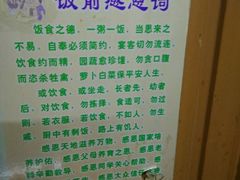 饭前感恩词
饭食之德，一粥一饭，当思来之
不易，自奉必须简约，宴客切勿流连
饮食约而精，园蔬愈珍馐，勿贪口腹
而恣杀牲禽，萝卜白菜保平安人生。
或饮食，或坐走，长者先，幼者
后，对饮食，勿拣择，食适可，勿过
则，若衣服，若饮食，不如人，勿生
戚，厨中有剩饭，路上有饥人，
感恩天地滋养万物，感恩国家培
养护佑，感恩父母养育之恩，感恩老
师辛勤教导，感恩同学关心帮助，感
感恩大众信